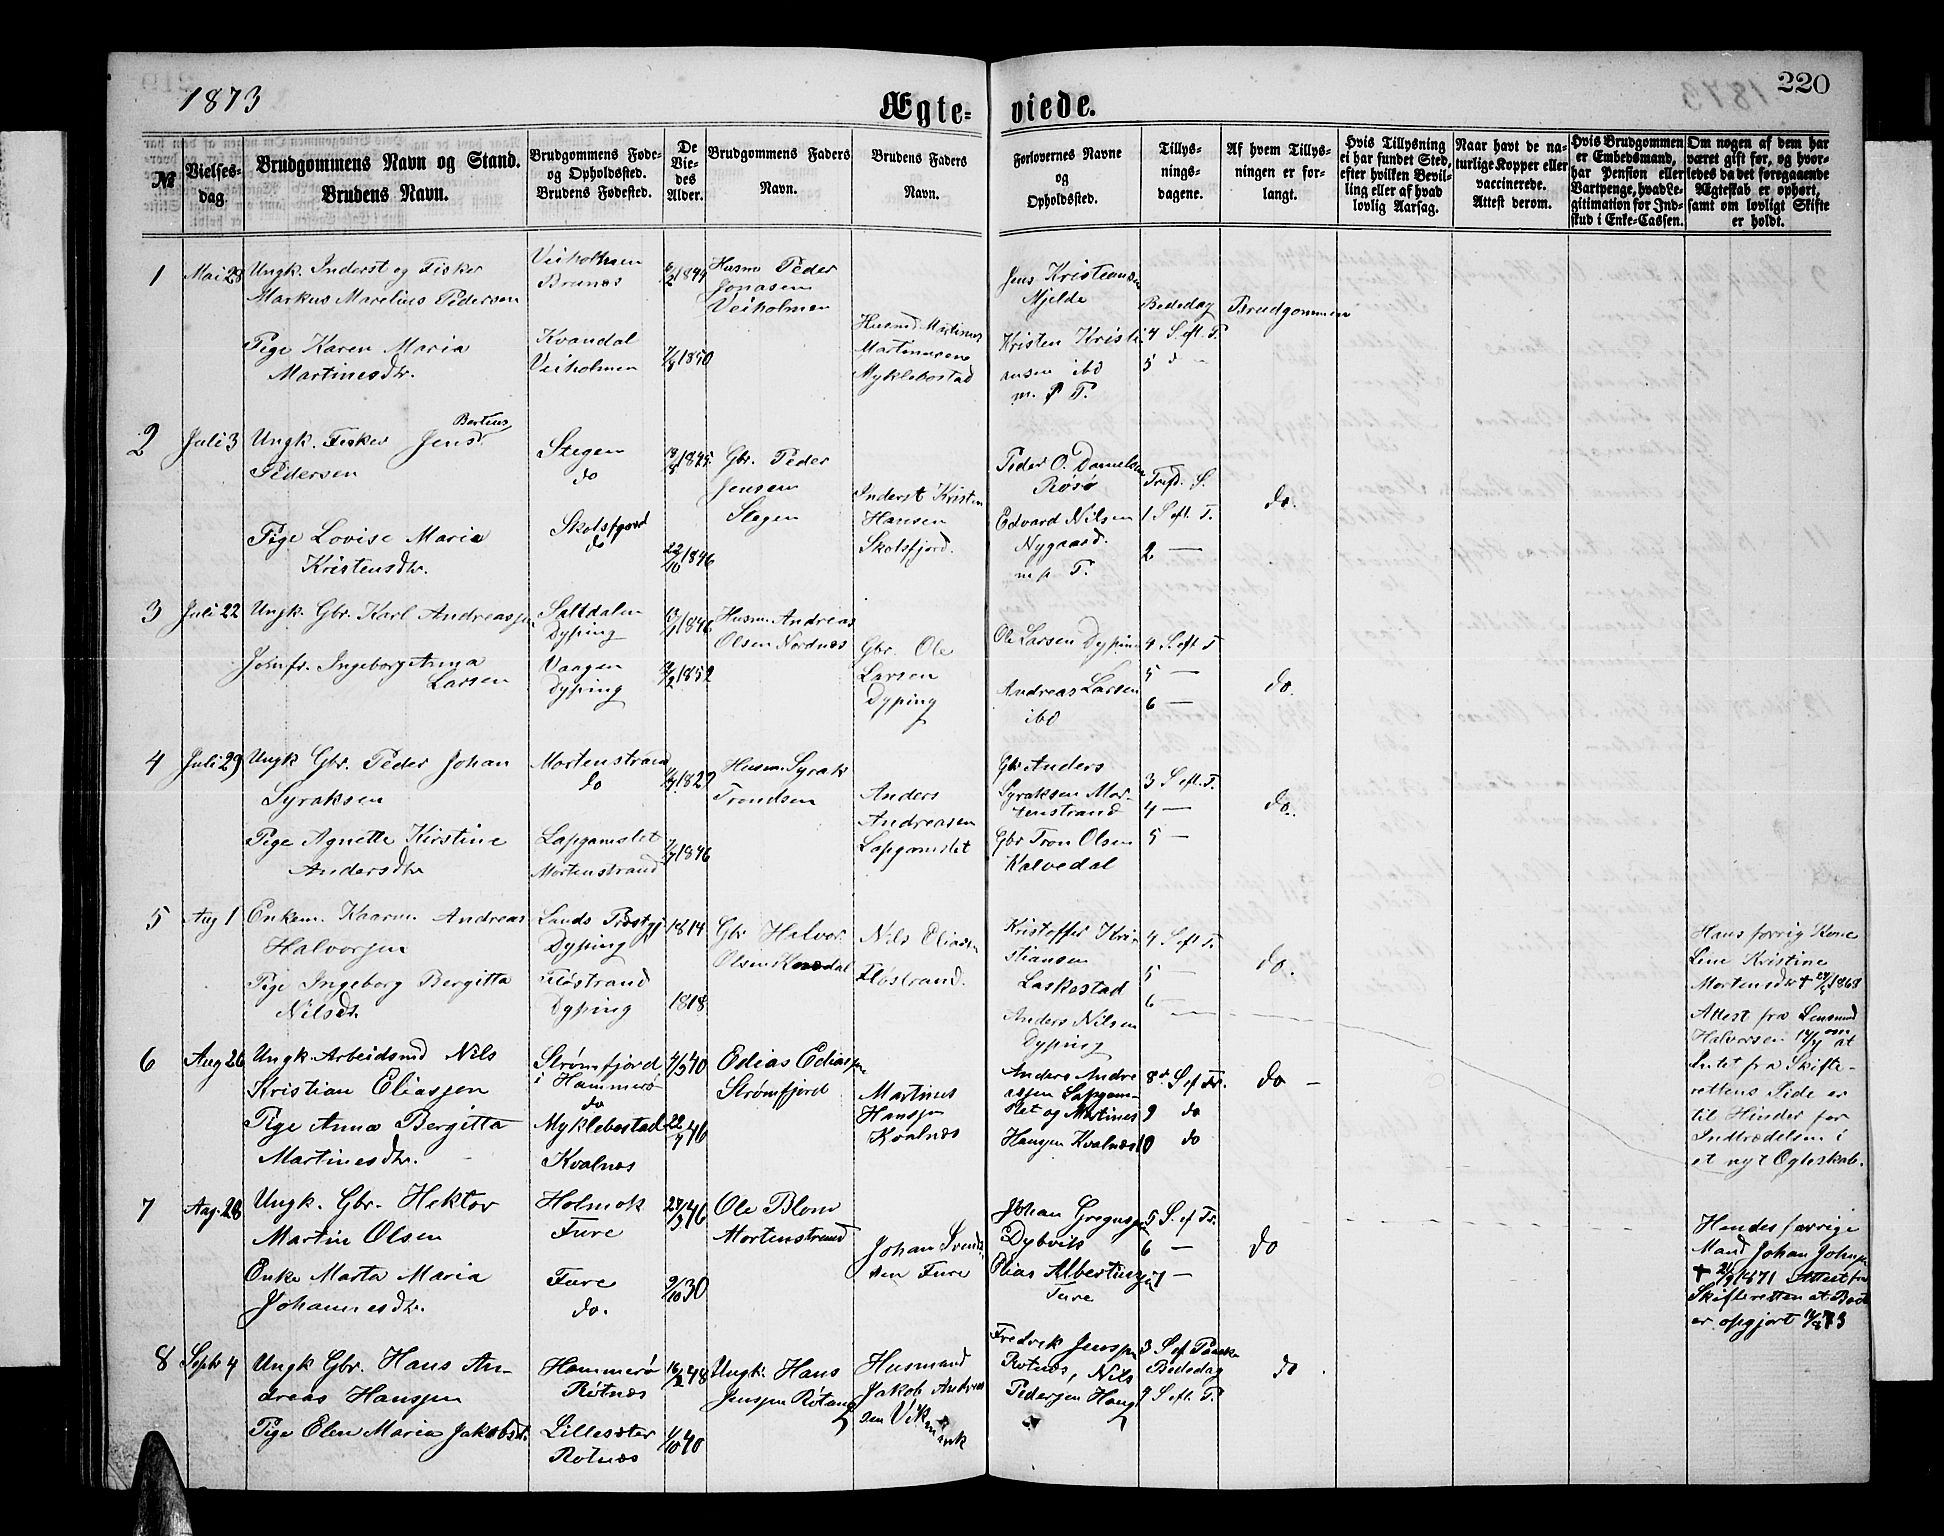 1873
Ægte- viede.
220
№
Vielses-
dag.
Brudgommens Navn og Stand.
Brudens Navn.
Brudgommens Føde-
og Opholdssted.
Brudens Fødested.
De
Vie-
des
Alder.
Brudgommens Faders
Navn.
Brudens Faders
Navn.
Forlovernes Navne
og
Opholdssted.
Tillys-
nings-
dagene.
Af hvem Tillys-
ningen er for-
langt.
Hvis Tillysning
ei har fundet Sted,
efter hvilken Bevil-
ling eller af hvad
lovlig Aarsag.
Naar havt de na-
turlige Kopper eller
vaccinerede.
Attest derom.
Hvis Brudgommen
er Embedsmand,
har Pension eller
Vartpenge, hvad Le-
gitimation for Ind-
skud i Enke-Cassen.
Om nogen af dem har
været gift før, og hvor-
ledes da det foregaaende
Ægteskab er ophørt,
samt om lovligt Skifte
er holdt.
1
Mai 28
Ungk. Inderst og Fisker
Markus Marelius Pedersen
Pige Karen Maria
Martinesdtr.
Veiholmen
Brunes
Kvandal
Veiholmen
1849
1850
Husm Peder
Jonasen
Veiholmen
Husmd Martinus
Myklebostad
Jens Kristiansen
Mjelde
Kristen Kristi
ansen ibd
m. p T.
Bededag
4 S. eft. T.
5 d -
Brudgommen
2
Juli 3
Ungk. Fisker Jens Bertius
Pedersen
Pige Lovise Maria
Kristensdtr.
Stegen
do
Skotsfjord
do
1845
22/10 1846
Gbr. Peder
Jensen
Stegen
Inderst Kristen
Hansen
Skotsfjord.
Peder O. Danielsen
Røsø
Edvard Nilsen
Nygaard.
m p. T.
Trefd. S.
1 S eft. T.
2 —
do.
3
Juli 22
Ungk. Gbr. Karl Andreasen
Jomfr. Ingeborg Anna
Larsen
Saltdalen
Dyping
Vaagen
Dyping
1846
1852
Husm. Andreas
Olsen Nordnes
Gbr. Ole
Larsen
Dyping
Ole Larsen Dyping
Andreas Larsen
ibd
4 S. eft T
5 —
6 —
do.
4
Juli 29
Ungk Gbr. Peder Johan
Syraksen
Pige Agnette Kirstine
Andersdtr
Mortenstrand
do
Lapgamslet
Mortenstrand
1829
1846
Husm. Syrak
Trondsen
Anders
Andreasen
Lapgamslet
Gbr Anders
Syraksen Mor-
tenstrand
Gbr Tron Olsen
Kalvedal
3 S eft. T.
4 —
5 —
do.
5
Aug 1
Enkem. Kaarm. Andreas
Halvorsen
Pige Ingeborg Bergitta
Nilsdtr.
Lands Præstgj
Dyping
Fløstrand
Dyping
1814
1818
Gbr Halvor
Olsen
Nils Eliasen
Fløstrand.
Kristoffer Kri
stiansen
Laskestad
Anders Nilsen
Dyping
4 S eft T.
5 —
6 —
do.
Hans forrig Kone
Lene Kristine
Mortensdtr + 1868
Attest fra Lensmd
Halvorsen om at
Intet fra Skifte-
rettens Side er
til Hinder for
Indtrædelsen i
et nyt Egteskab.
6
Aug 26
Ungk Arbeidsmd Nils
Kristian Eliassen
Pige Anna Bergitta
Martinesdtr.
Strømfjord
i Hammerø
do
Myklebostad
Kvalnæs
40
46
Edias Ediassen
Strømfjord
Martinus
Hansen
Kvalnæs
Anders Andre
assen Lapgam-
slet og Martines
Hansen Kvalnæs
8d. S ef Tr.
9 do
10 do
do —
7
Aug. 28
Ungk. Gbr. Hektor
Martin Olsen
Enke Marta Maria
Johannesdtr.
Holmok
Fure
Fure
do.
46
9/10 30
Ole Blom
Mortenstrand
Johan Svend-
sen Fure
Johan Gregussen
Dybvik
Elias Albertussen
Fure
5 S. ef Tr.
6 —
7 —
do
Hendes forrige
Mand Johan Johnsen
+ 1871 Attest fra
Skifteretten at Boet
er opgjort 73
8
Septr 4
Ungk Gbr. Hans An-
dreas Hanssen
Pige Elen Maria Jakobsdtr.
Hammerø
Rotnæs
Lillesæter
Rotnæs
16/2 48
40
Ungk. Hans
Jenssen Røtang
Husmand
Jakob Andreas
sen
Fredrik Jenssen
Rotnæs, Nils
Pederssen Haug
3 S ef Paaske
Bededag
9 S eft. T.
do